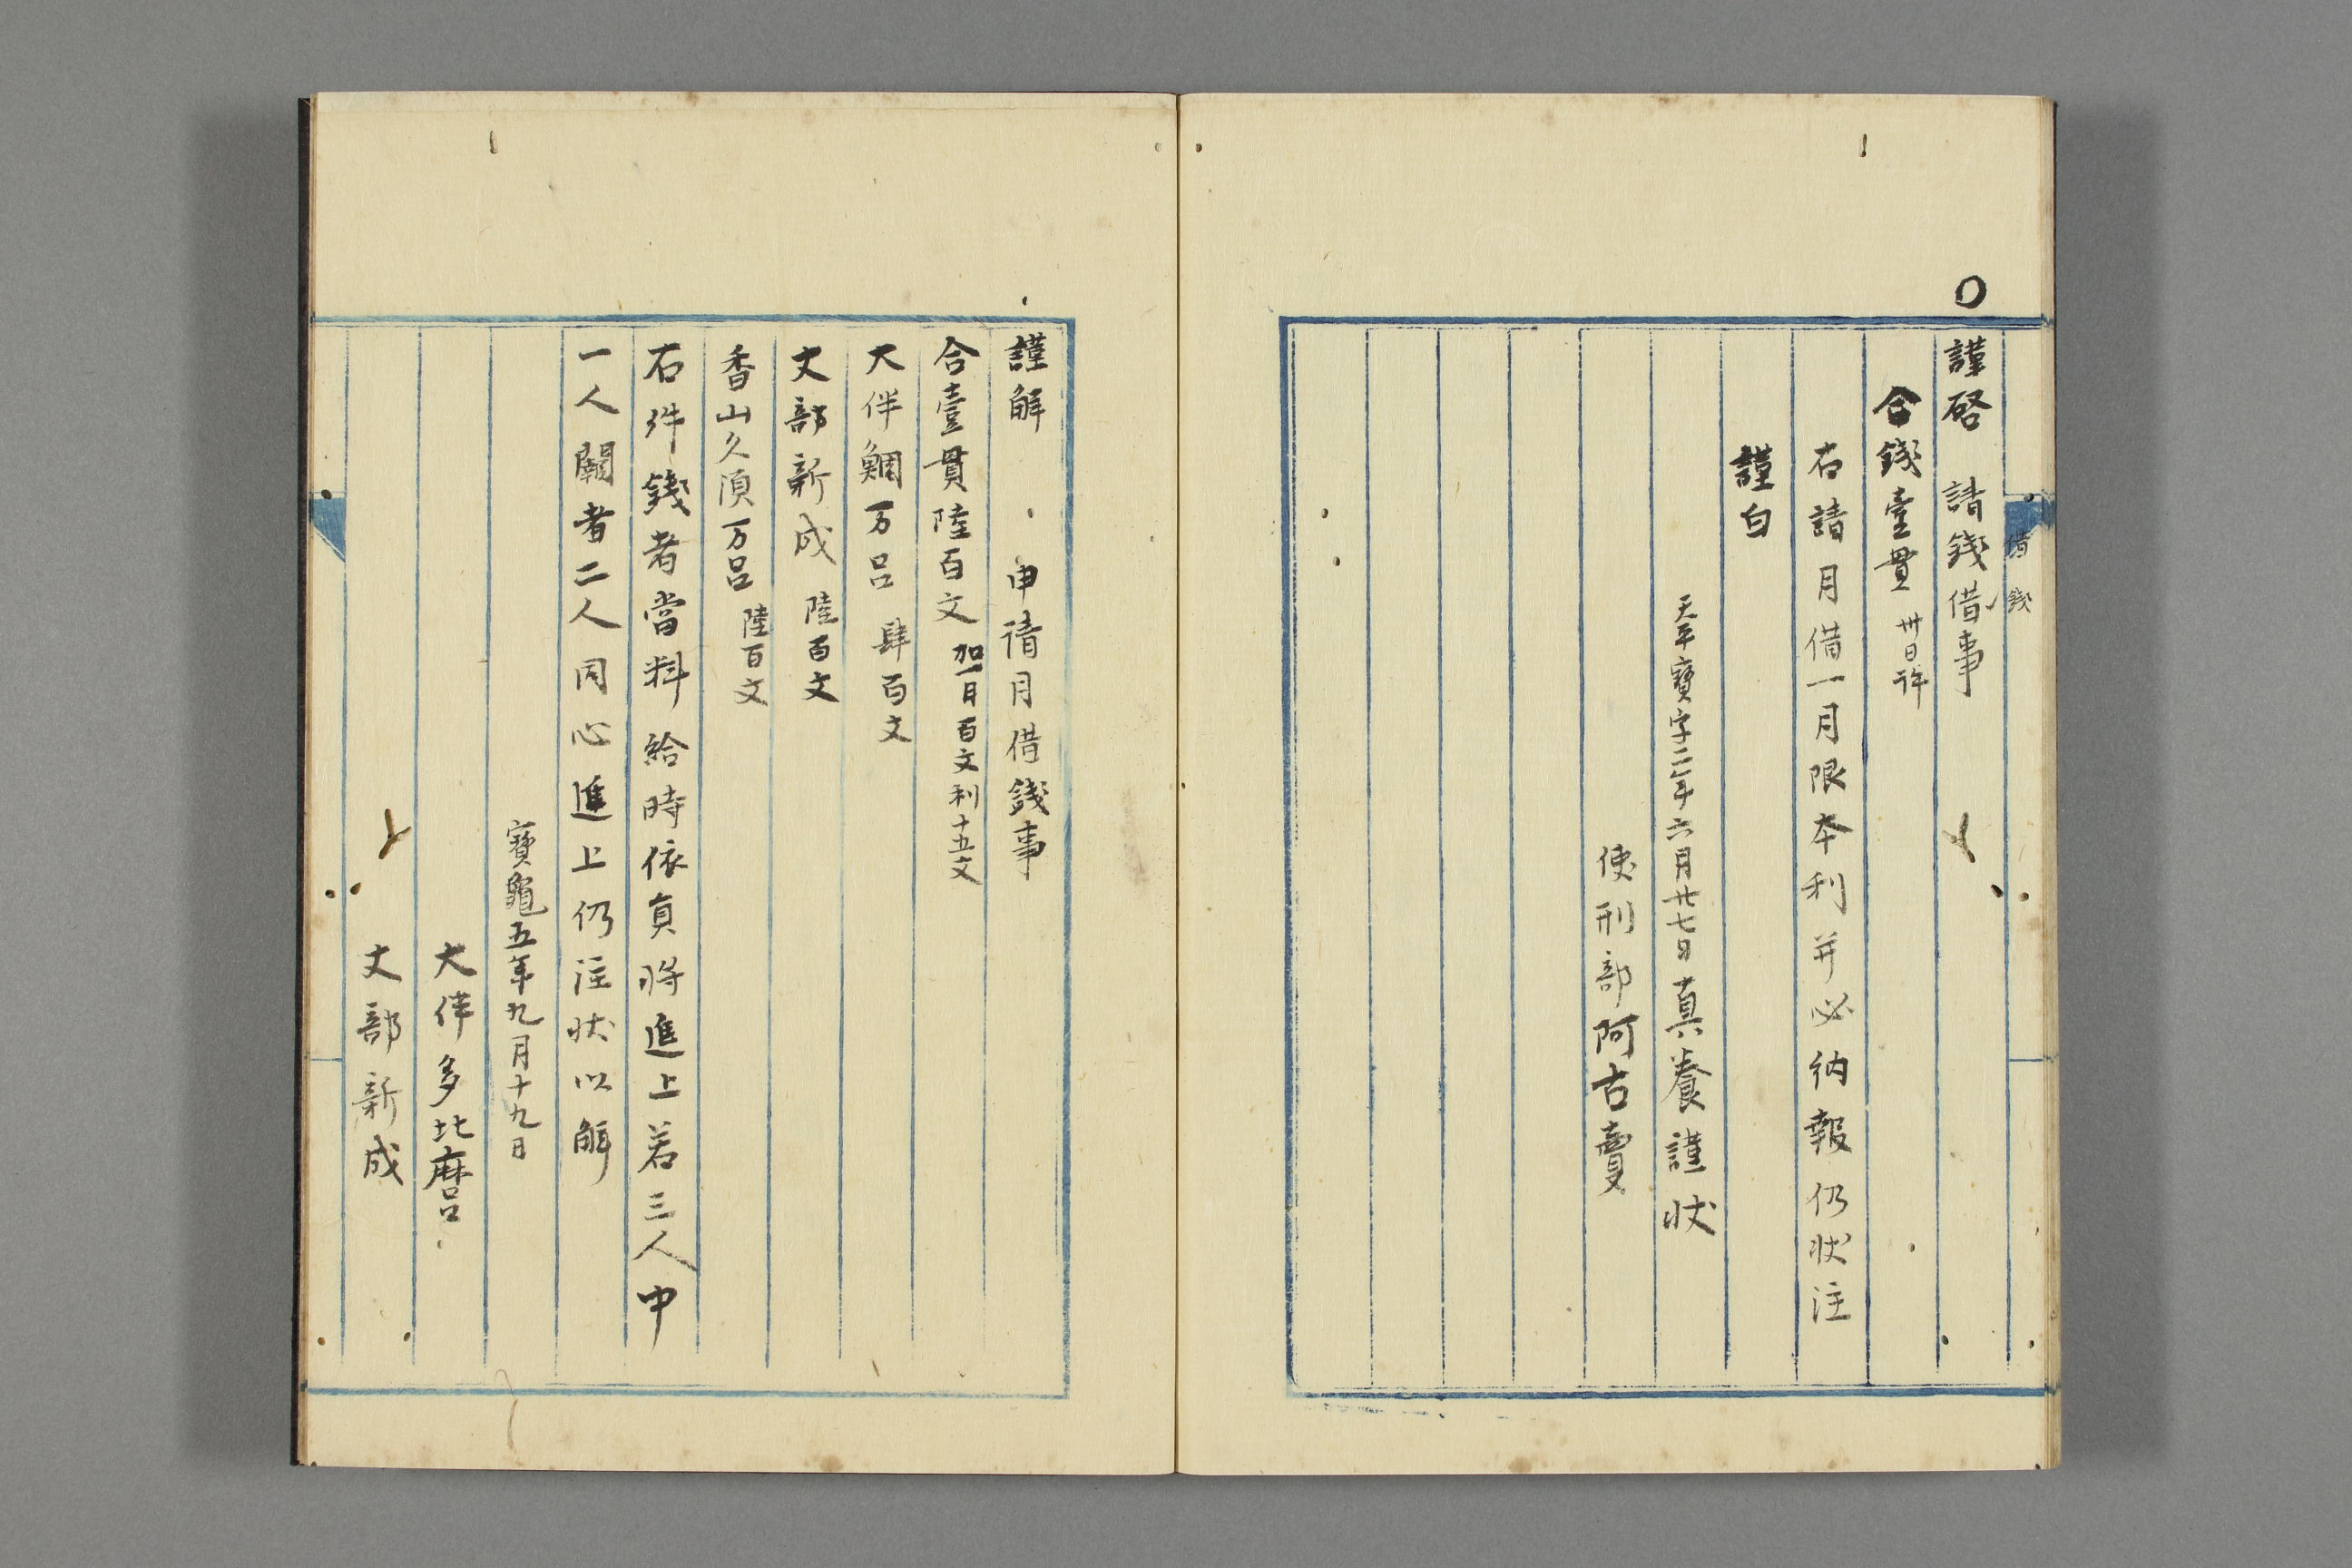 借錢
謹啓 請錢借事
合錢壹貫 卅日許
右請月借一月限本利并必納報仍状注
謹白
天平寶字二年六月廿七日真養謹状
使刑部阿古賣
謹解 申請月借錢事
合壹貫陸百文 加一月百文利十五文
大伴鯛万呂 肆百文
丈部新成 陸百文
香山久須万呂 陸百文
右件錢者當料給時依員将進上若三人中
一人闕者二人同心進上仍注状以解
寶龜五年九月十九日
大伴多比麿
丈部新成